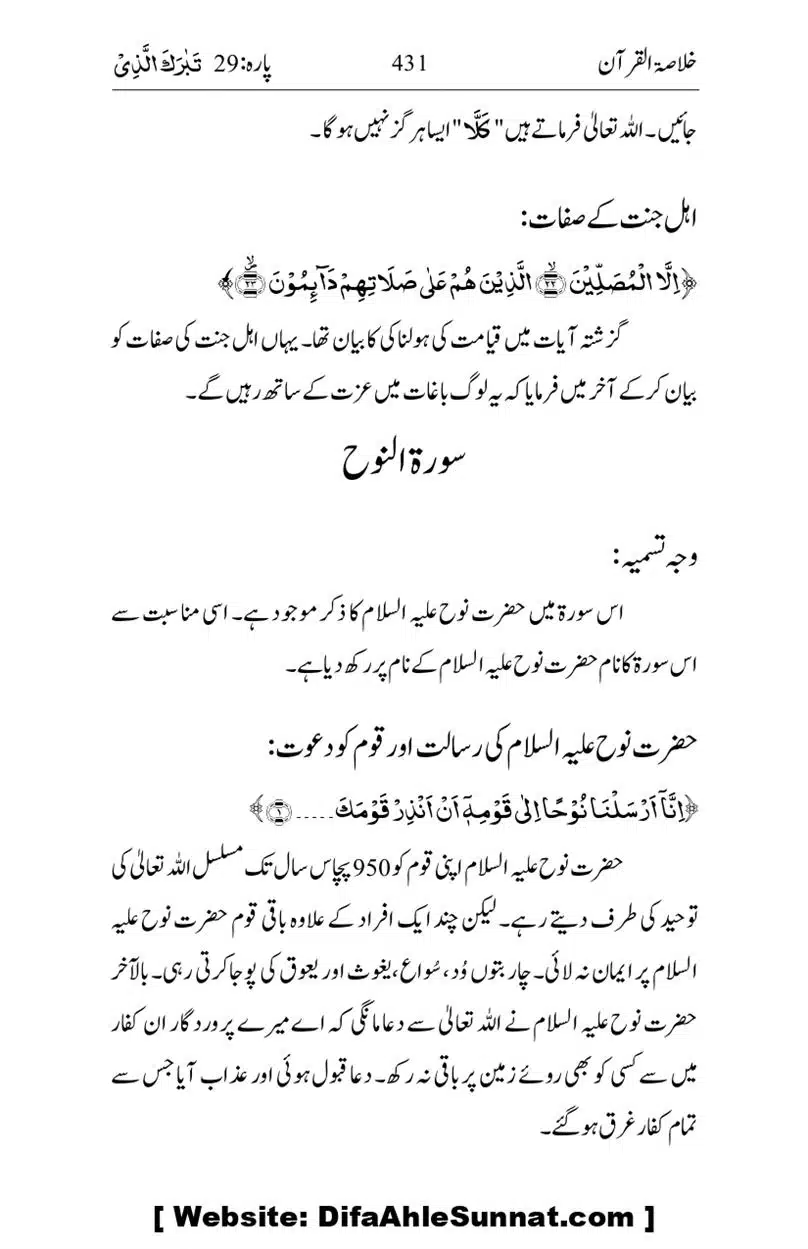 خلاصۃ القرآن 431 پارہ:29 تَبٰرَكَ الَّذِیْ
جائیں۔ اللہ تعالیٰ فرماتے ہیں "كَلَّا" ایسا ہر گز نہیں ہو گا۔
اہل جنت کے صفات:
﴿اِلَّا الْمُصَلِّیْنَ ﴿ۙ۲۲﴾ الَّذِیْنَ هُمْ عَلٰی صَلَاتِهِمْ دَآىِٕمُوْنَ ﴿۪ۙ۲۳﴾﴾
گزشتہ آیات میں قیامت کی ہولناکی کا بیان تھا۔ یہاں اہل جنت کی صفات کو
بیان کر کے آخر میں فرمایا کہ یہ لوگ باغات میں عزت کے ساتھ رہیں گے۔
سورۃ النوح
وجہ تسمیہ:
اس سورۃ میں حضرت نوح علیہ السلام کا ذکر موجود ہے۔ اسی مناسبت سے
اس سورۃ کا نام حضرت نوح علیہ السلام کے نام پر رکھ دیا ہے۔
حضرت نوح علیہ السلام کی رسالت اور قوم کو دعوت:
﴿اِنَّاۤ اَرْسَلْنَا نُوْحًا اِلٰی قَوْمِهٖۤ اَنْ اَنْذِرْ قَوْمَكَ ..... ﴿۱﴾﴾
حضرت نوح علیہ السلام اپنی قوم کو 950 پچاس سال تک مسلسل اللہ تعالیٰ کی
توحید کی طرف دیتے رہے۔ لیکن چند ایک افراد کے علاوہ باقی قوم حضرت نوح علیہ
السلام پر ایمان نہ لائی۔ چار بتوں وُد، سُواع، یغوث اور یعوق کی پوجا کرتی رہی۔ بالآخر
حضرت نوح علیہ السلام نے اللہ تعالیٰ سے دعا مانگی کہ اے میرے پروردگار ان کفار
میں سے کسی کو بھی روئے زمین پر باقی نہ رکھ۔ دعا قبول ہوئی اور عذاب آیا جس سے
تمام کفار غرق ہو گئے۔
[ Website: DifaAhleSunnat.com ]